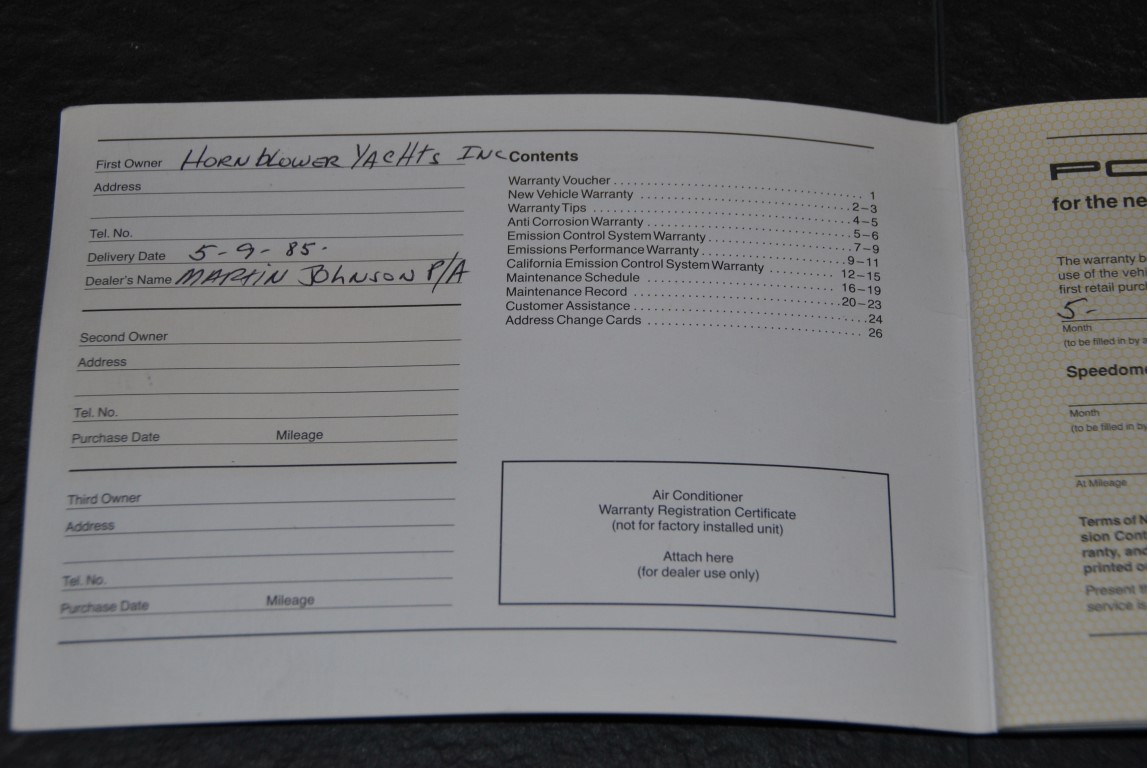 First Owner HORNBLOWER YACHTS INC
Address
Tel. No.
Delivery Date 5-9-85.
Dealer's Name MARTIN JOHNSON P/A
Second Owner
Address
Tel. No.
Purchase Date Mileage
Third Owner
Address
Tel. No.
Purchase Date Mileage
Contents
Warranty Voucher 1
New Vehicle Warranty 2-3
Warranty Tips 4-5
Anti Corrosion Warranty 5-6
Emission Control System Warranty 7-9
Emissions Performance Warranty 9-11
California Emission Control System Warranty 12-15
Maintenance Schedule 16-19
Maintenance Record 20-23
Customer Assistance 24
Address Change Cards 26
Air Conditioner
Warranty Registration Certificate
(not for factory installed unit)
Attach here
(for dealer use only)
PO
for the ne
The warranty b
use of the vehi
first retail purc
5-
Month
(to be filled in by a
Speedom
Month
(to be filled in by
At Mileage
Terms of N
sion Cont
ranty, and
printed o
Present th
service is